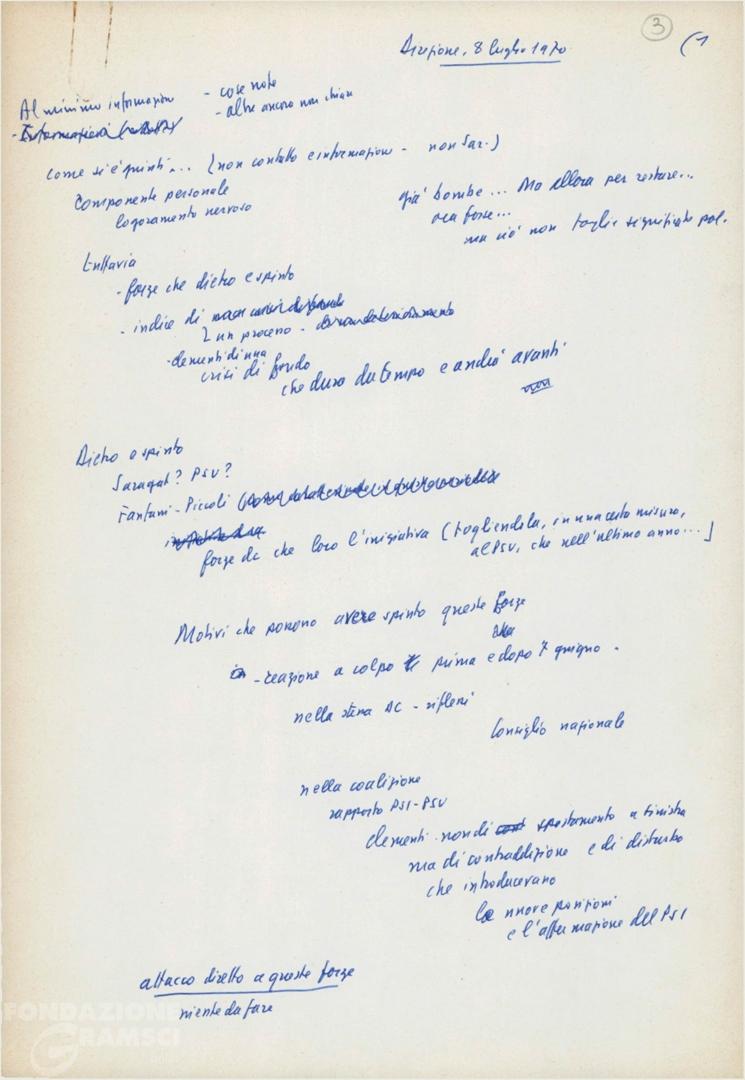 3
(1
Direzione, 8 luglio 1970
Al minimo informazioni
- cose note
- altre ancora non chiare
- Informazioni
come si è giunti... (non contatto e informazione - non Sar.)
Componente personale
logoramento nervoso
già bombe... Ma allora per restare...
ora forse...
ma ciò non toglie significato pol.
Tuttavia
- forze che dietro e spinto
- indice di
un processo -
- elementi di una
crisi di fondo
che dura da tempo e andrà avanti
Dietro e spinto
Saragat? PSU?
Fanfani - Piccoli
forze dc che loro l'iniziativa (togliendola, in una certa misura,
al PSU, che nell'ultimo anno...)
Motivi che possono avere spinto queste forze
- reazione a colpo prima e dopo 7 giugno.
nella stessa DC - riflessi
Consiglio nazionale
nella coalizione
rapporto PSI-PSU
elementi non di spostamento a sinistra
ma di contraddizione e di disturbo
che introducevano
le nuove posizioni
e l'affermazione del PSI
attacco diretto a queste forze
niente da fare
FONDAZIONE
GRAMSCI